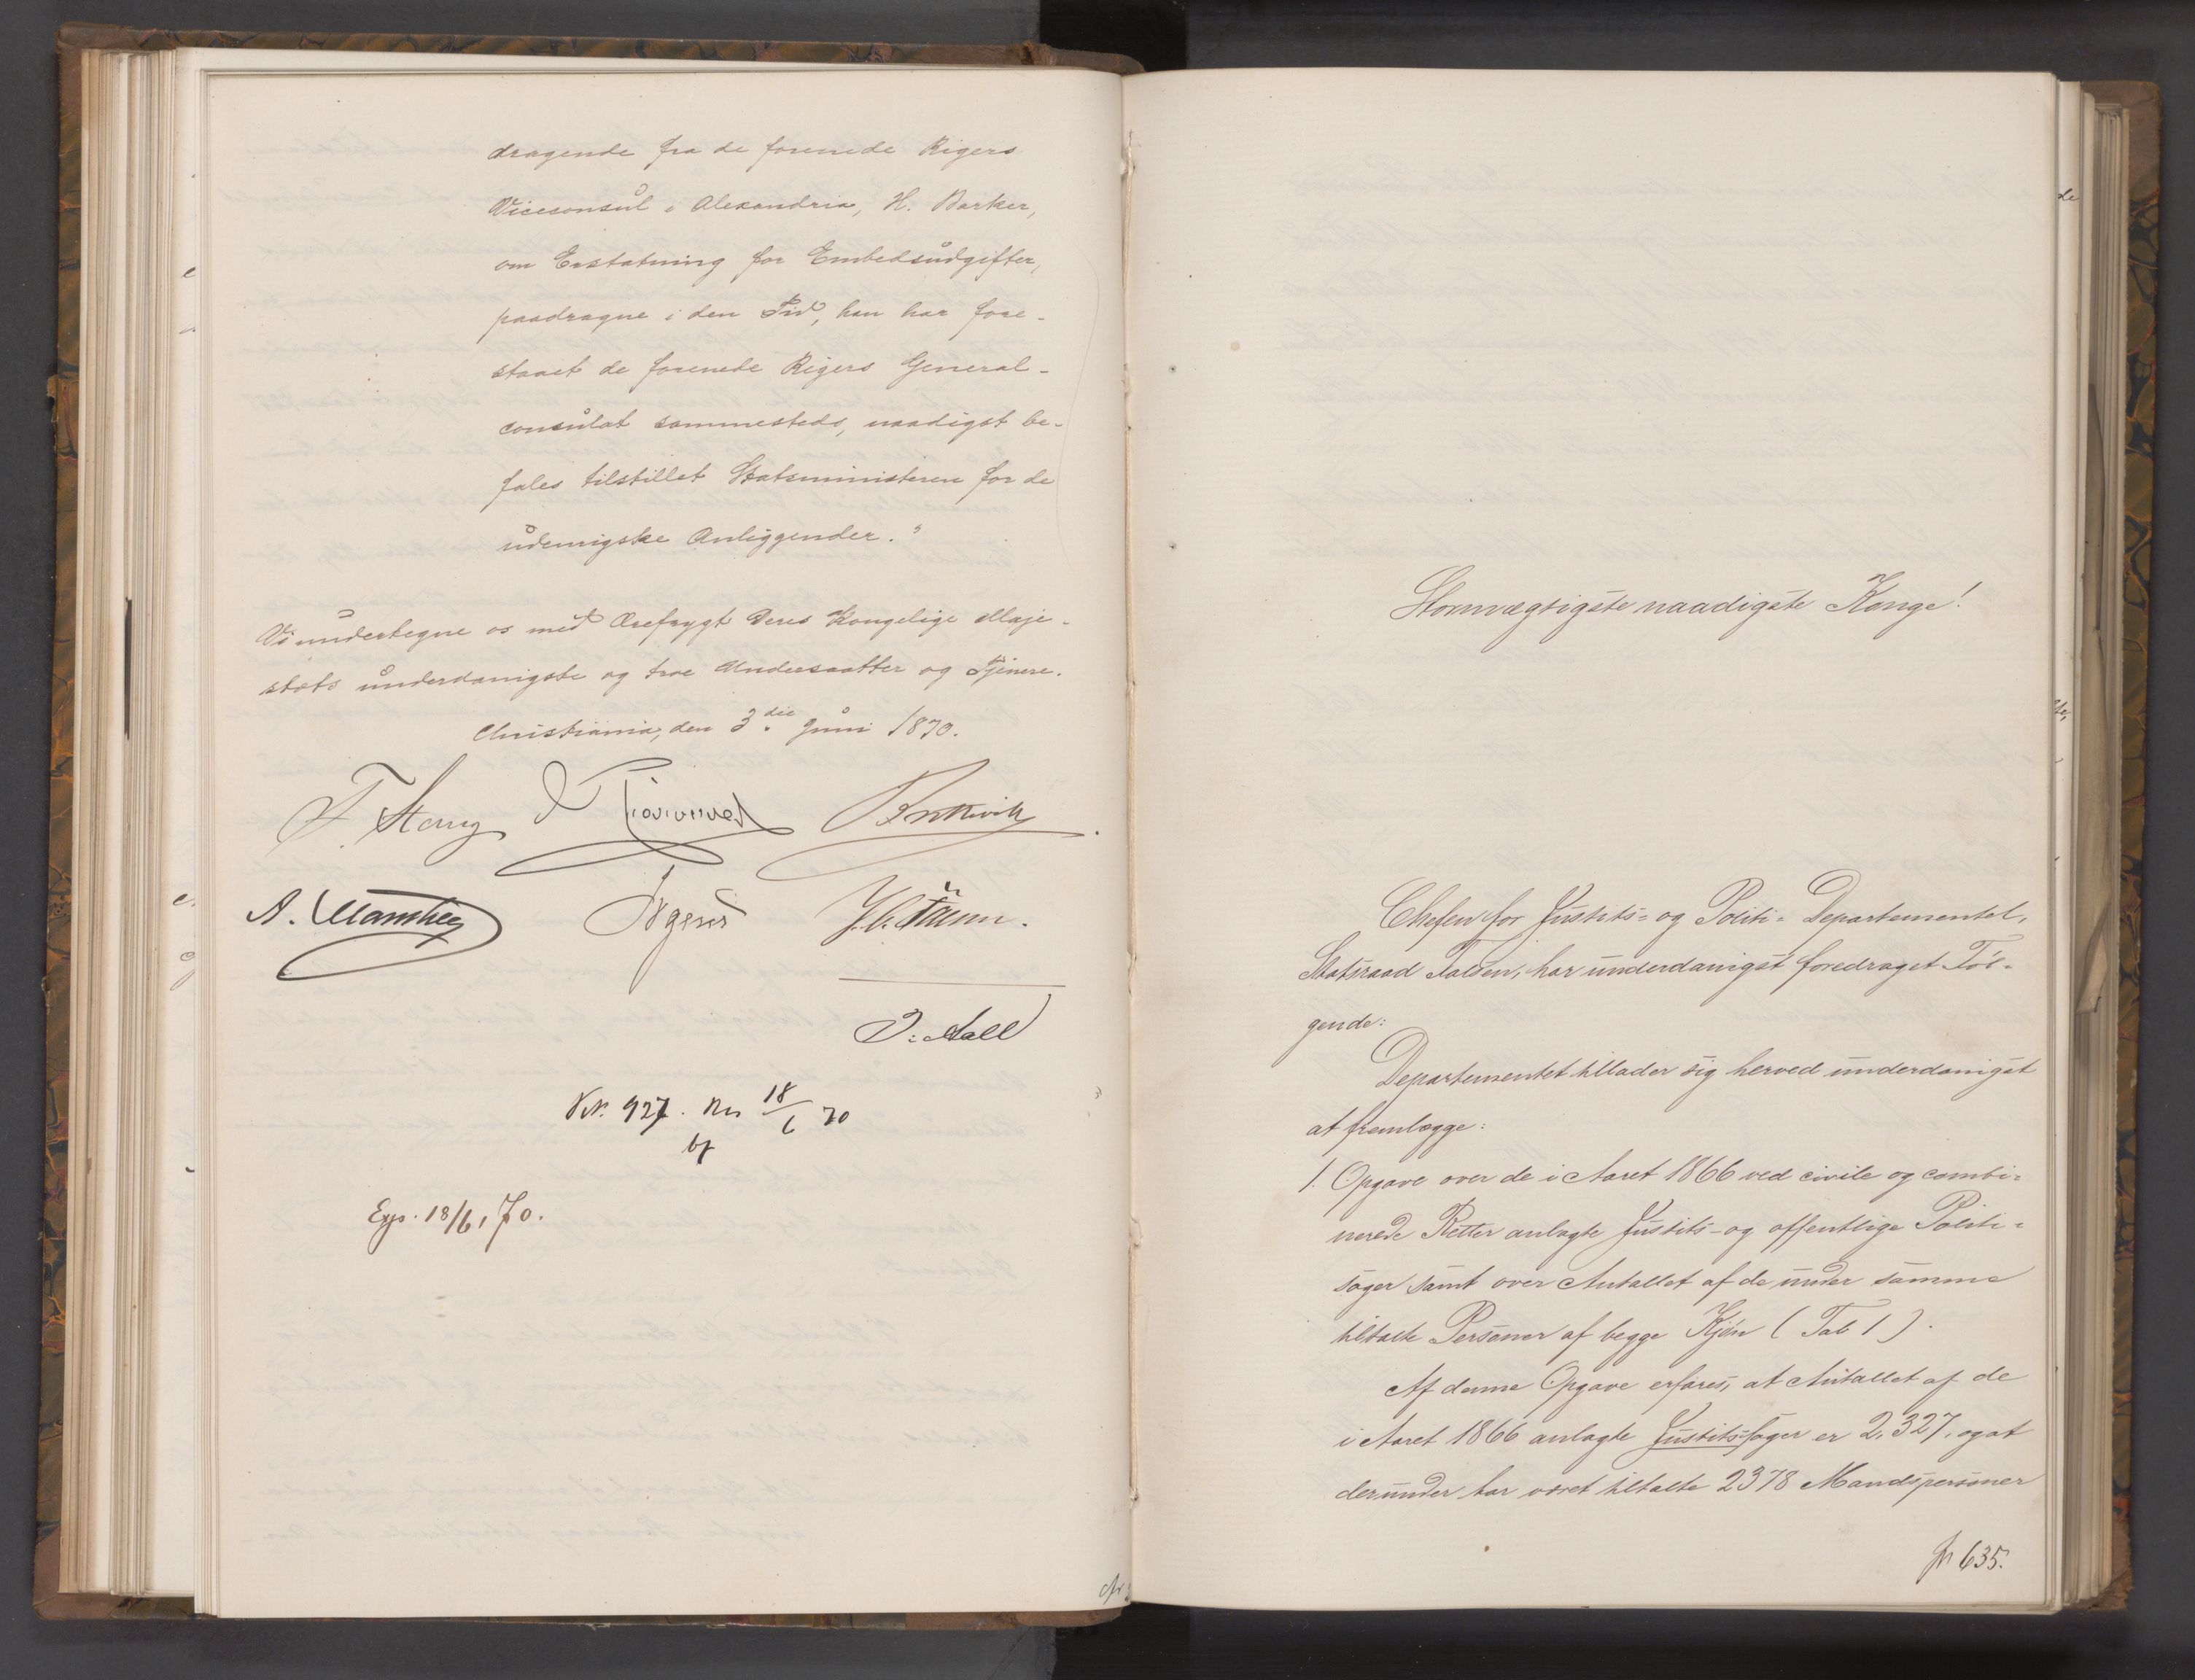 dragende fra de forenede Rigers
Viceconsul i Alexandria, H. Barker,
om Erstatning for Embedsudgifter,
paadragne i den Tid, han har fore-
staaet de forenede Rigers General-
consulat sammesteds, naadigst be-
fales tilstillet Statsministeren for de
udenrigske Anliggender."
Vi undertegne os med Ærefrygt Deres Kongelige Maje-
stæts underdanigste og troe Undersaatter og Tjenere.
Christiania, den 3die Juni 1870.
F. Stang
Bretteville
A. Manthey
J. Aall
18/6 70
Exp. 18/6, 70.
Stormægtigste naadigste Konge!
Chefen for Justits- og Politi-Departementet,
Statsraad Falsen, har underdanigst foredraget Føl-
gende:
Departementet tillader sig herved underdanigst
at fremlægge:
1. Opgave over de i Aaret 1866 ved civile og combi-
nerede Retter anlagte Justits- og offentlige Politi-
sager samt over Antallet af de under samme
tiltalte Personer af begge Kjøn (Tab 1).
Af denne Opgave erfares, at Antallet af de
i Aaret 1866 anlagte Justitssager er 2,327, og at
derunder har været tiltalte 2378 Mandspersoner
Jr 635.